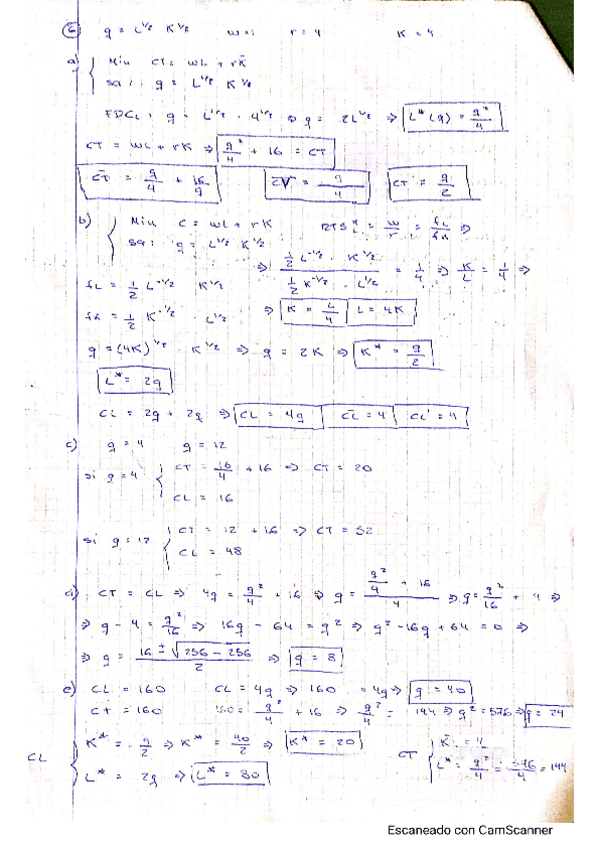 6) q = L^1/2 K^1/2 w=1 r=4 K=4
a) { Min CT = wL + rK̄
sa: q = L^1/2 K^1/2
FDCL: q = L^1/2 · 4^1/2 ⇒ q = 2L^1/2 ⇒ L*(q) = q²/4
CT = wL + rK ⇒ q²/4 + 16 = CT
CT̄ = q/4 + 16/q CV̄ = q/4 CT' = q/2
b) { Min C = wL + rK RTS = w/r = fL/fK ⇒
sa: q = L^1/2 K^1/2
⇒ (1/2 L^-1/2 · K^1/2)/(1/2 K^-1/2 · L^1/2) = 1/4 ⇒ K/L = 1/4 ⇒
fL = 1/2 L^-1/2 K^1/2
fK = 1/2 K^-1/2 · L^1/2 ⇒ K = L/4 L = 4K
q = (4K)^1/2 · K^1/2 ⇒ q = 2K ⇒ K* = q/2
L* = 2q
CL = 2q + 2q ⇒ CL = 4q CL̄ = 4 CL' = 4
c) q = 4 q = 12
si q = 4 { CT = 16/4 + 16 ⇒ CT = 20
CL = 16
si q = 12 { CT = 12 + 16 ⇒ CT = 52
CL = 48
d) CT = CL ⇒ 4q = q²/4 + 16 ⇒ q = (q²/4 + 16)/4 ⇒ q = q²/16 + 4 ⇒
⇒ q - 4 = q²/16 ⇒ 16q - 64 = q² ⇒ q² - 16q + 64 = 0 ⇒
⇒ q = (16 ± √(256 - 256))/2 ⇒ q = 8
e) CL = 160 CL = 4q ⇒ 160 = 4q ⇒ q = 40
CT = 160 160 = q²/4 + 16 ⇒ q²/4 = 144 ⇒ q² = 576 ⇒ q = 24
CL { K* = q/2 ⇒ K* = 40/2 ⇒ K* = 20 CT { K̄ = 4
L* = 2q ⇒ L* = 80 L* = q²/4 = 576/4 = 144
Escaneado con CamScanner